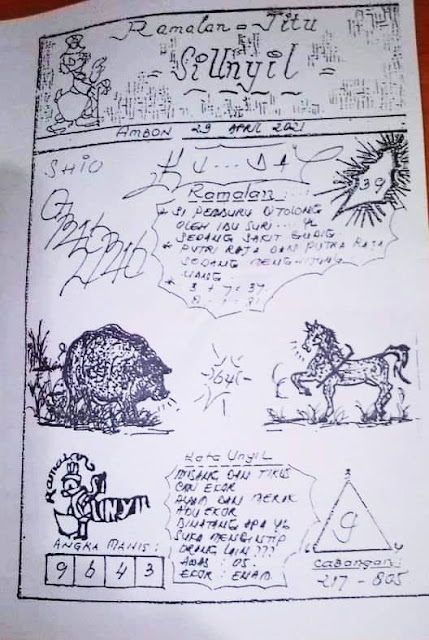 Ramalan = Jitu
= SiUnyil =
AMBON 29 APRIL 2021
SHIO
39
Ramalan :
* SI PEMBURU DITOLONG
OLEH IBU SURI
SEDANG SAKIT GUDIG
* PUTRI RAJA DAN PUTRA RAJA
SEDANG MENGHITUNG
UANG
* 3 + 7 = 37
8 1 = 81
64
Ramalan
UNYIL
Kata Unyil
MUSANG DAN TIKUS
DAN EKOR
AYAM DAN MERAK
ADU EKOR
BINATANG APA YG
SUKA MENGINTIP
ORANG LAIN ???
AWAS : 05.
EKOR : ENAM
ANGKA MANIS :
9 6 4 3
3
9
4
Cabangan :
217 - 805